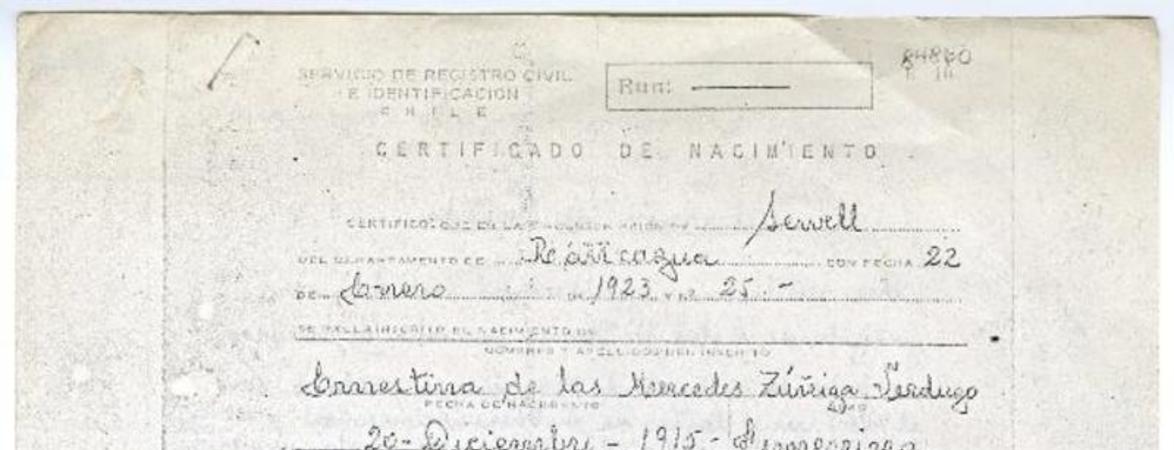 84860
SERVICIO DE REGISTRO CIVIL
E IDENTIFICACION
CHILE
Run:
CERTIFICADO DE NACIMIENTO
CERTIFICO: QUE EN LA CIRCUNSCRIPCION DE Sewell
DEL DEPARTAMENTO DE Rancagua CON FECHA 22
DE Enero DE 1923 Y N° 25.-
SE HALLA INSCRITO EL NACIMIENTO DE
NOMBRES Y APELLIDOS DEL INSCRITO
Ernestina de las Mercedes Zúñiga Verdugo
FECHA DE NACIMIENTO
20- Diciembre - 1915- Femenino